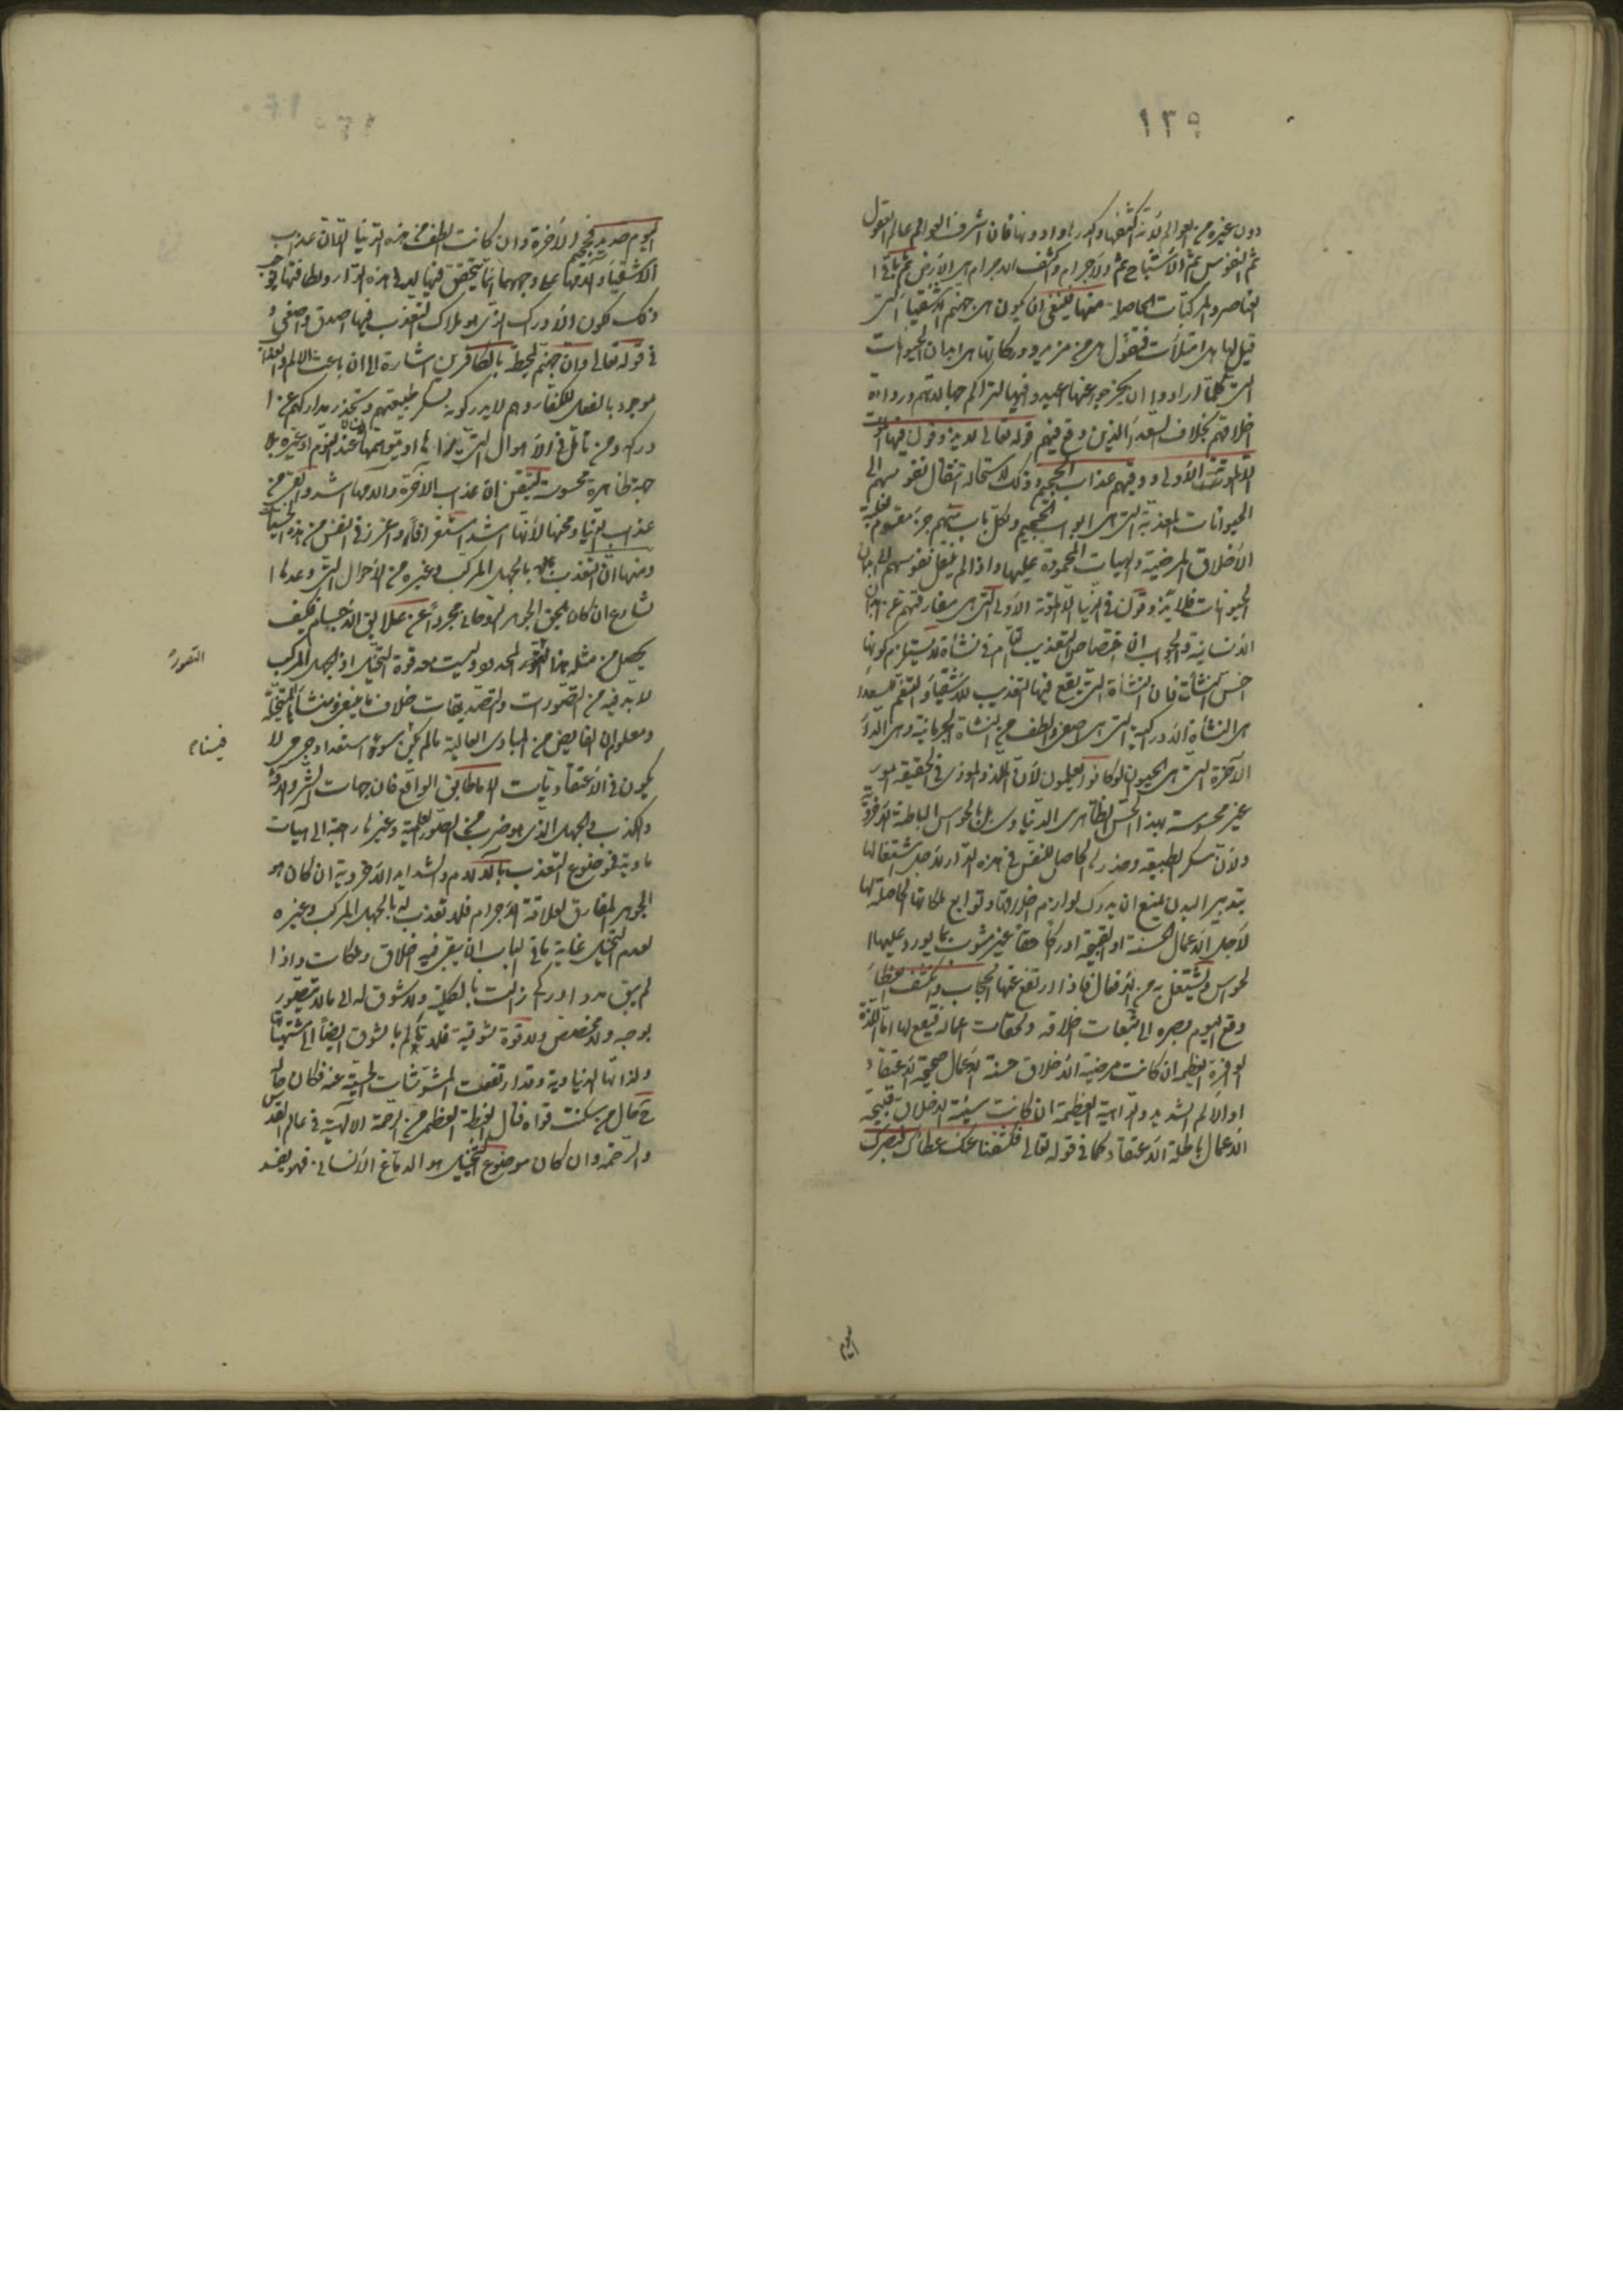 ١٣٩
دون غيره من العوالم لانه اكثفها واكدرها وادونها فان اشرف العوالم عالم العقول
ثم النفوس ثم الاشباح ثم الاجرام واكثف الاجرام هى الارض ثم باقى ا
لعناصر والمركبات الحاصلة منها فينبغى ان يكون هى جهنم الاشقياء التى
قيل لها هل امتلأت فتقول هل من مزيد ودركاتها هى ابدان الحيوانات
التى كلما ارادوا ان يخرجوا عنها اعيدوا فيها لتراكم جهالاتهم ورداءة
اخلاقهم بخلاف السعداء الذين وقع فيهم قوله تعالى لا يذوقون فيها الموت
الا الموتة الأولى ووقيهم عذاب الجحيم وذلك لاستحالة انتقال نفوسهم الى
الحيوانات المعذبة التى هى ابواب الجحيم ولكل باب منهم جزء مقسوم لغلبة
الأخلاق المرضية والهيات المحمودة عليها واذا لم ينتقل نفوسهم الى ابدان
الحيوانات فلا يذوقون فى الدنيا الا الموتة الأولى التى هى مفارقتهم عن الابدان
الانسانية والجواب ان اختصاص التعذيب التام فى نشأة لا يستلزم كونها
اخس النشأت فان النشأة التى يقع فيها التعذيب للاشقياء والتنعم للسعداء
هى النشأة الادراكية التى هى اصفى والطف من النشأة الجرمانية وهى الدار
الآخرة التى هى الحيوان لوكانوا يعلمون لأن الملذ والموذى فى الحقيقة امور
غير محسوسة بهذا الحس الظاهرى الدنياوى بل بالحواس الباطنة الاخروية
ولان سكر الطبيعة وخدرها الحاصل للنفس فى هذه الدار لاجل اشتغالها
بتدبير البدن يمنع ان يدرك لوازم اخلاقها وتوابع ملكاتها الحاصلة لها
لأجل الاعمال الحسنة او القبيحة ادراكا حقا غير مشوب بما يورد عليها ا
لحواس ويشتغل به من الافعال فاذا ارتفع عنها الحجاب وانكشف الغطاء
وقع اليوم بصره الى تبعات اخلاقه ولحقات اعماله فيقع لها اما اللذة
الوافرة العظيمة ان كانت مرضية الاخلاق حسنة الاعمال صحيحة الاعتقاد
او الالم الشديد والداهية العظيمة ان كانت سيئة الاخلاق قبيحة
الاعمال باطلة الاعتقاد كما فى قوله تعالى فكشفنا عنك غطاك فبصرك
اليوم
اليوم حديد فجحيم الآخرة وان كانت الطف من هذه الدنيا الا ان عذاب
الاشقياء وآلامها على وجهها انما يتحقق فيها لا فى هذه الدار ولطافتها توجب
ذلك لكون الادراك الذى هو ملاك التعذب فيها اصدق واصفى و
فى قوله تعالى وان جهنم لمحيطة بالكافرين اشارة الى ان باعث الالم والعذاب
موجود بالفعل للكفار وهم لا يدركونه لسكر طبيعتهم وتخذر مداركهم عن ا
دراكه ومن تأمل فى الاهوال التى يراها او يتوهمها عند النوم او غيره بلا
جهة ظاهرة محسوسة لتيقن ان عذاب الآخرة وآلامها اشد واقوى من
عذاب الدنيا ومحنها لأنها اشد استقرارا واغرز فى النفس من هذه الحسيات
ومنها ان التعذب بالجهل المركب وغيره من الاحوال التى وعدها ا
لشارع ان كان يلحق الجوهر الروحانى مجردا عن علايق الاجسام فكيف
يحصل من مثل هذا التصور المحدود وليست معه قوة التخيل اذ الجهل المركب
التصور
لا بد فيه من التصورات والتصديقات خلاف ما ينبغى ومنشأها المتخيلة
ومعلوم ان الفايض من المبادى العالية ما لم يكن بسوء استعداد جرمى لا
فيسناه
يكون فى الاعتقاديات الا ما طابق الواقع فان جهات الشر والآفة
والكذب فى الجهل الذى هو ضرب من الصور العلمية وغيرها راجعة الى هيات
مادية فموضوع التعذب بالآلام والشدايد الاخروية ان كان هو
الجوهر المفارق لعلاقة الاجرام فلا تعذب له بالجهل المركب وغيره
لعدم التخيل غاية ما فى الباب ان يبقى فيه اخلاق وملكات واذا
لم يبق مدد ادراكى زالت بالكلية ولا شوق له الى ما لا يتصور
بوجه ولا مخصص ولا قوة شوقية فلا يتألم بالشوق ايضا الى مشتهياتها
ولذاتها الدنياوية وقد ارتفعت المشوشات الحسية عنه فكان حاله
ح كحال من سكنت قواه فنال الغبطة العظمى من الرحمة الالهية فى عالم القدس
والرحمة وان كان موضوع التخيل هو الدماغ الانسانى فهو يفسد